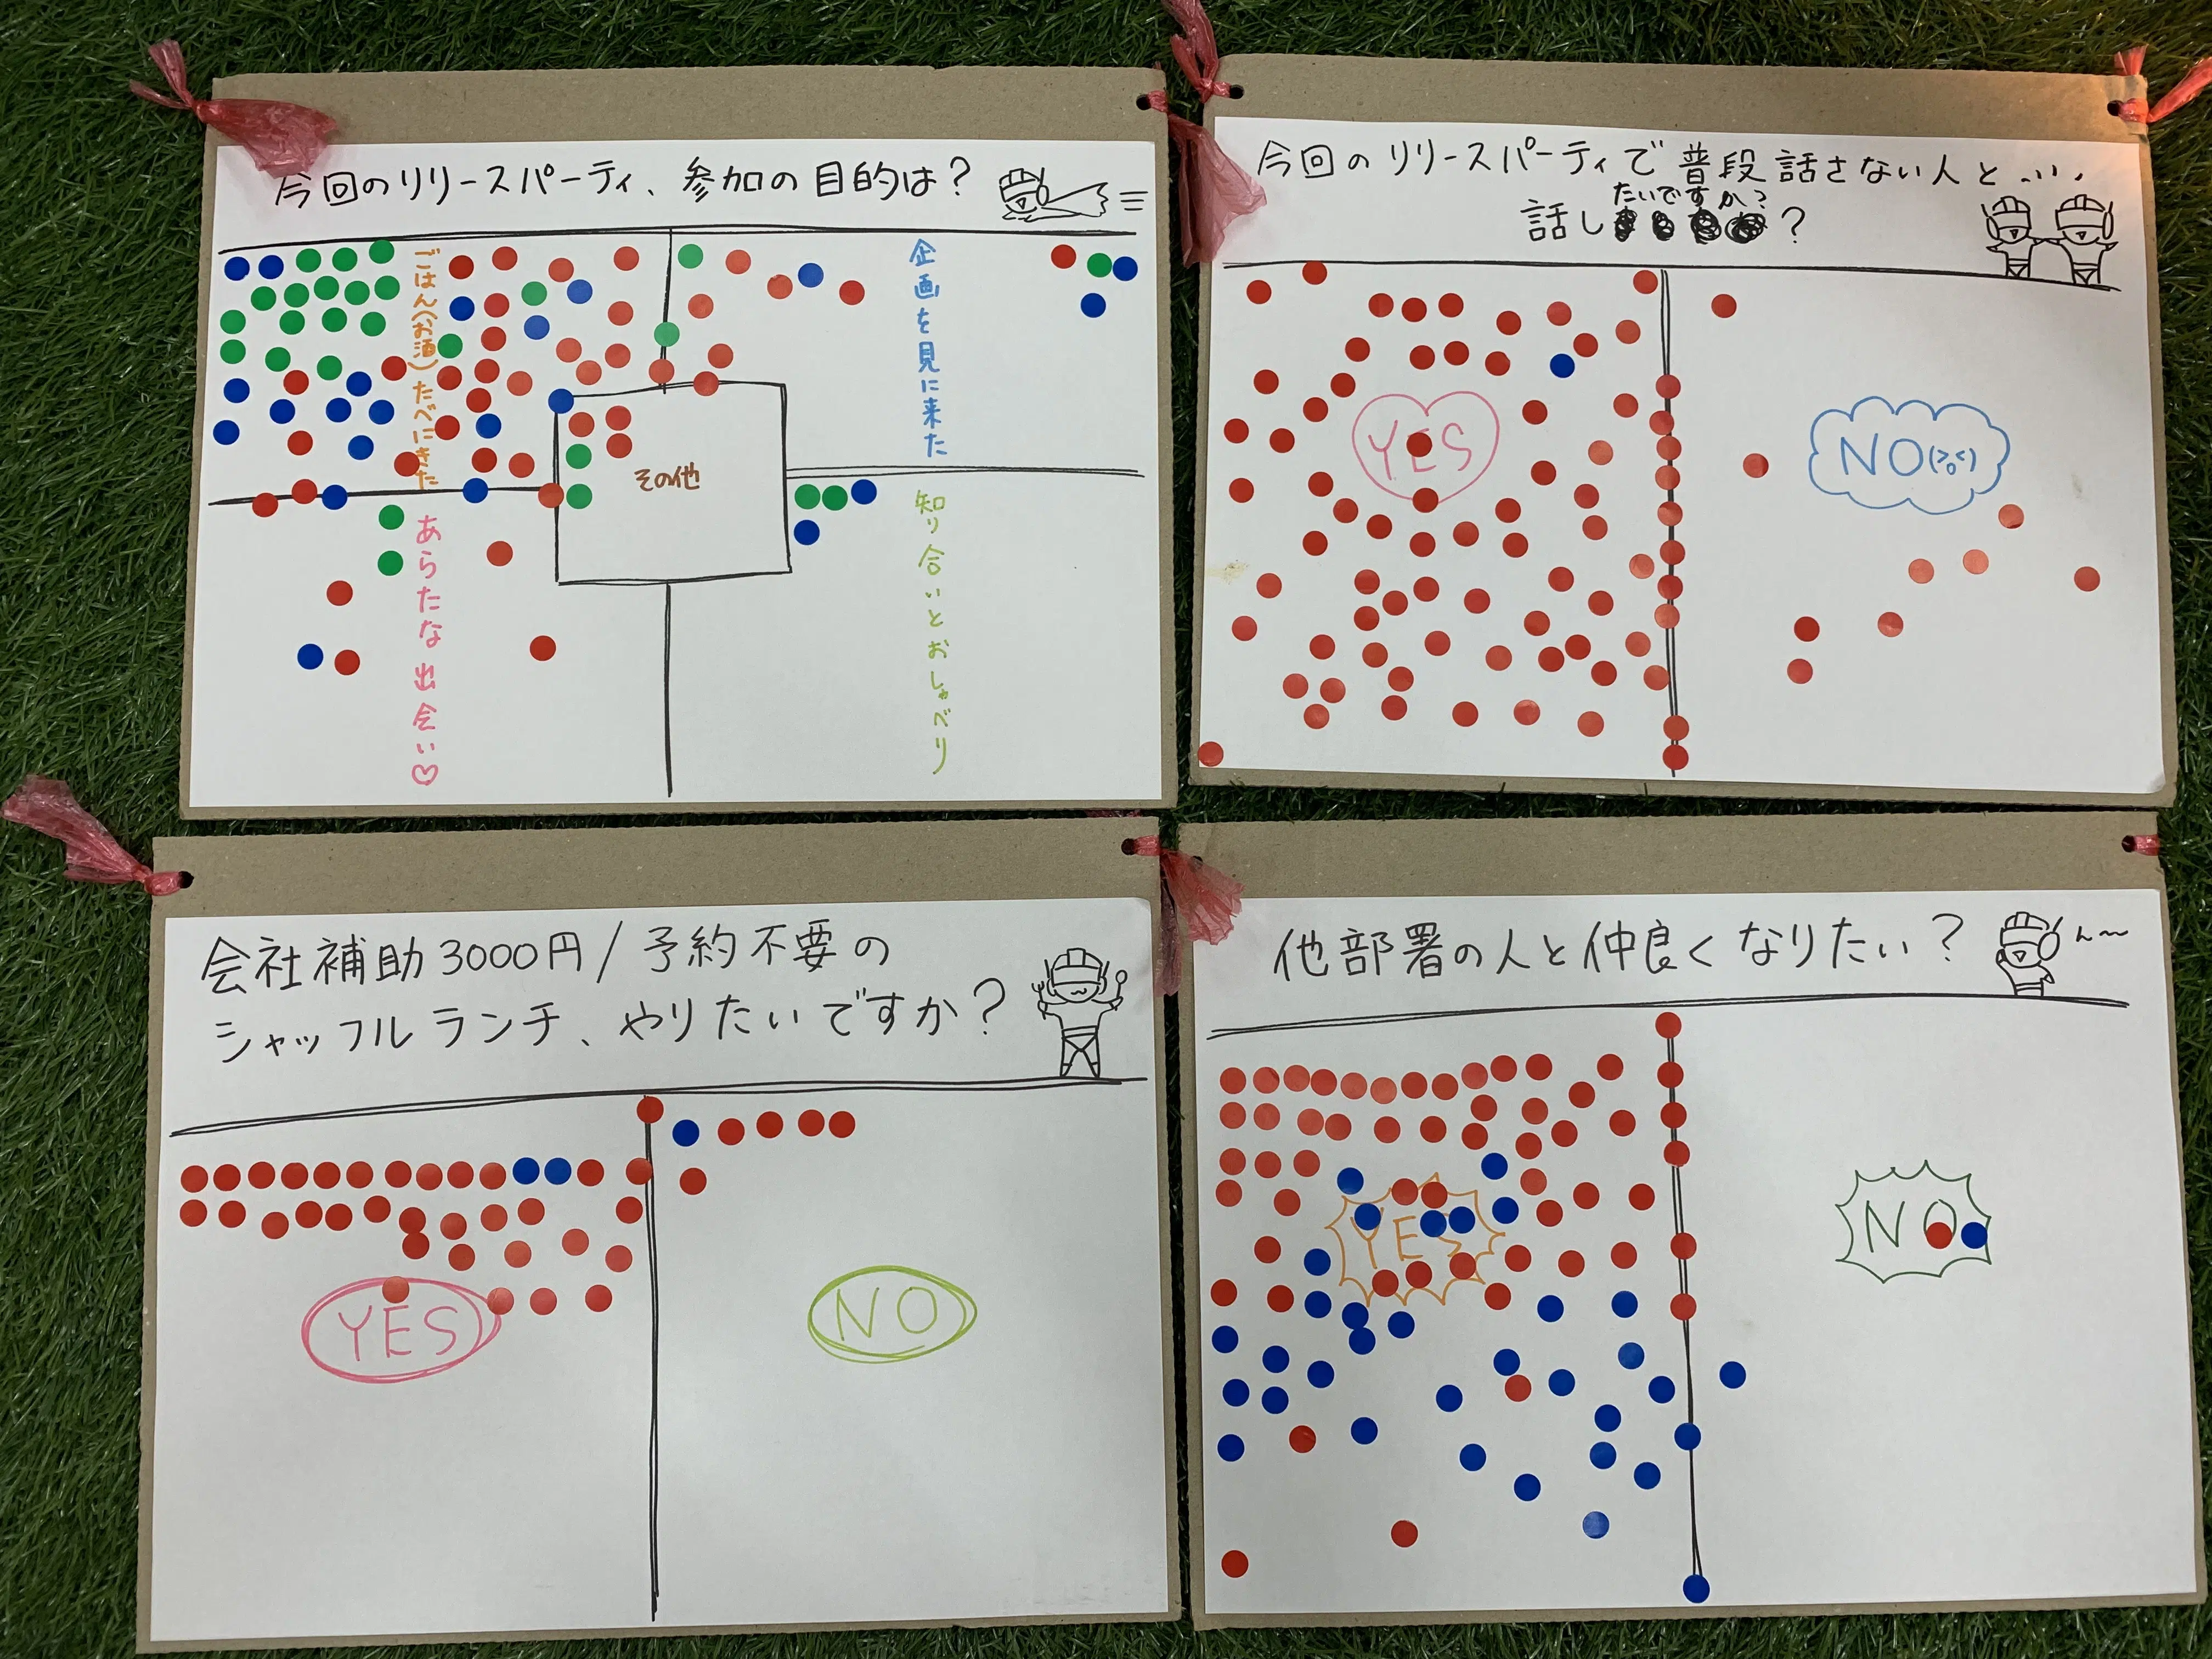 今回のリリースパーティ、参加の目的は？
ごはん(お酒)たべにきた
企画を見に来た
その他
あらたな出会い♡
知り合いとおしゃべり
今回のリリースパーティで普段話さない人と...
たいですか？
話し？
YES
NO(>o<)
会社補助3000円/予約不要の
シャッフルランチ、やりたいですか？
YES
NO
他部署の人と仲良くなりたい？
ん〜
YES
NO